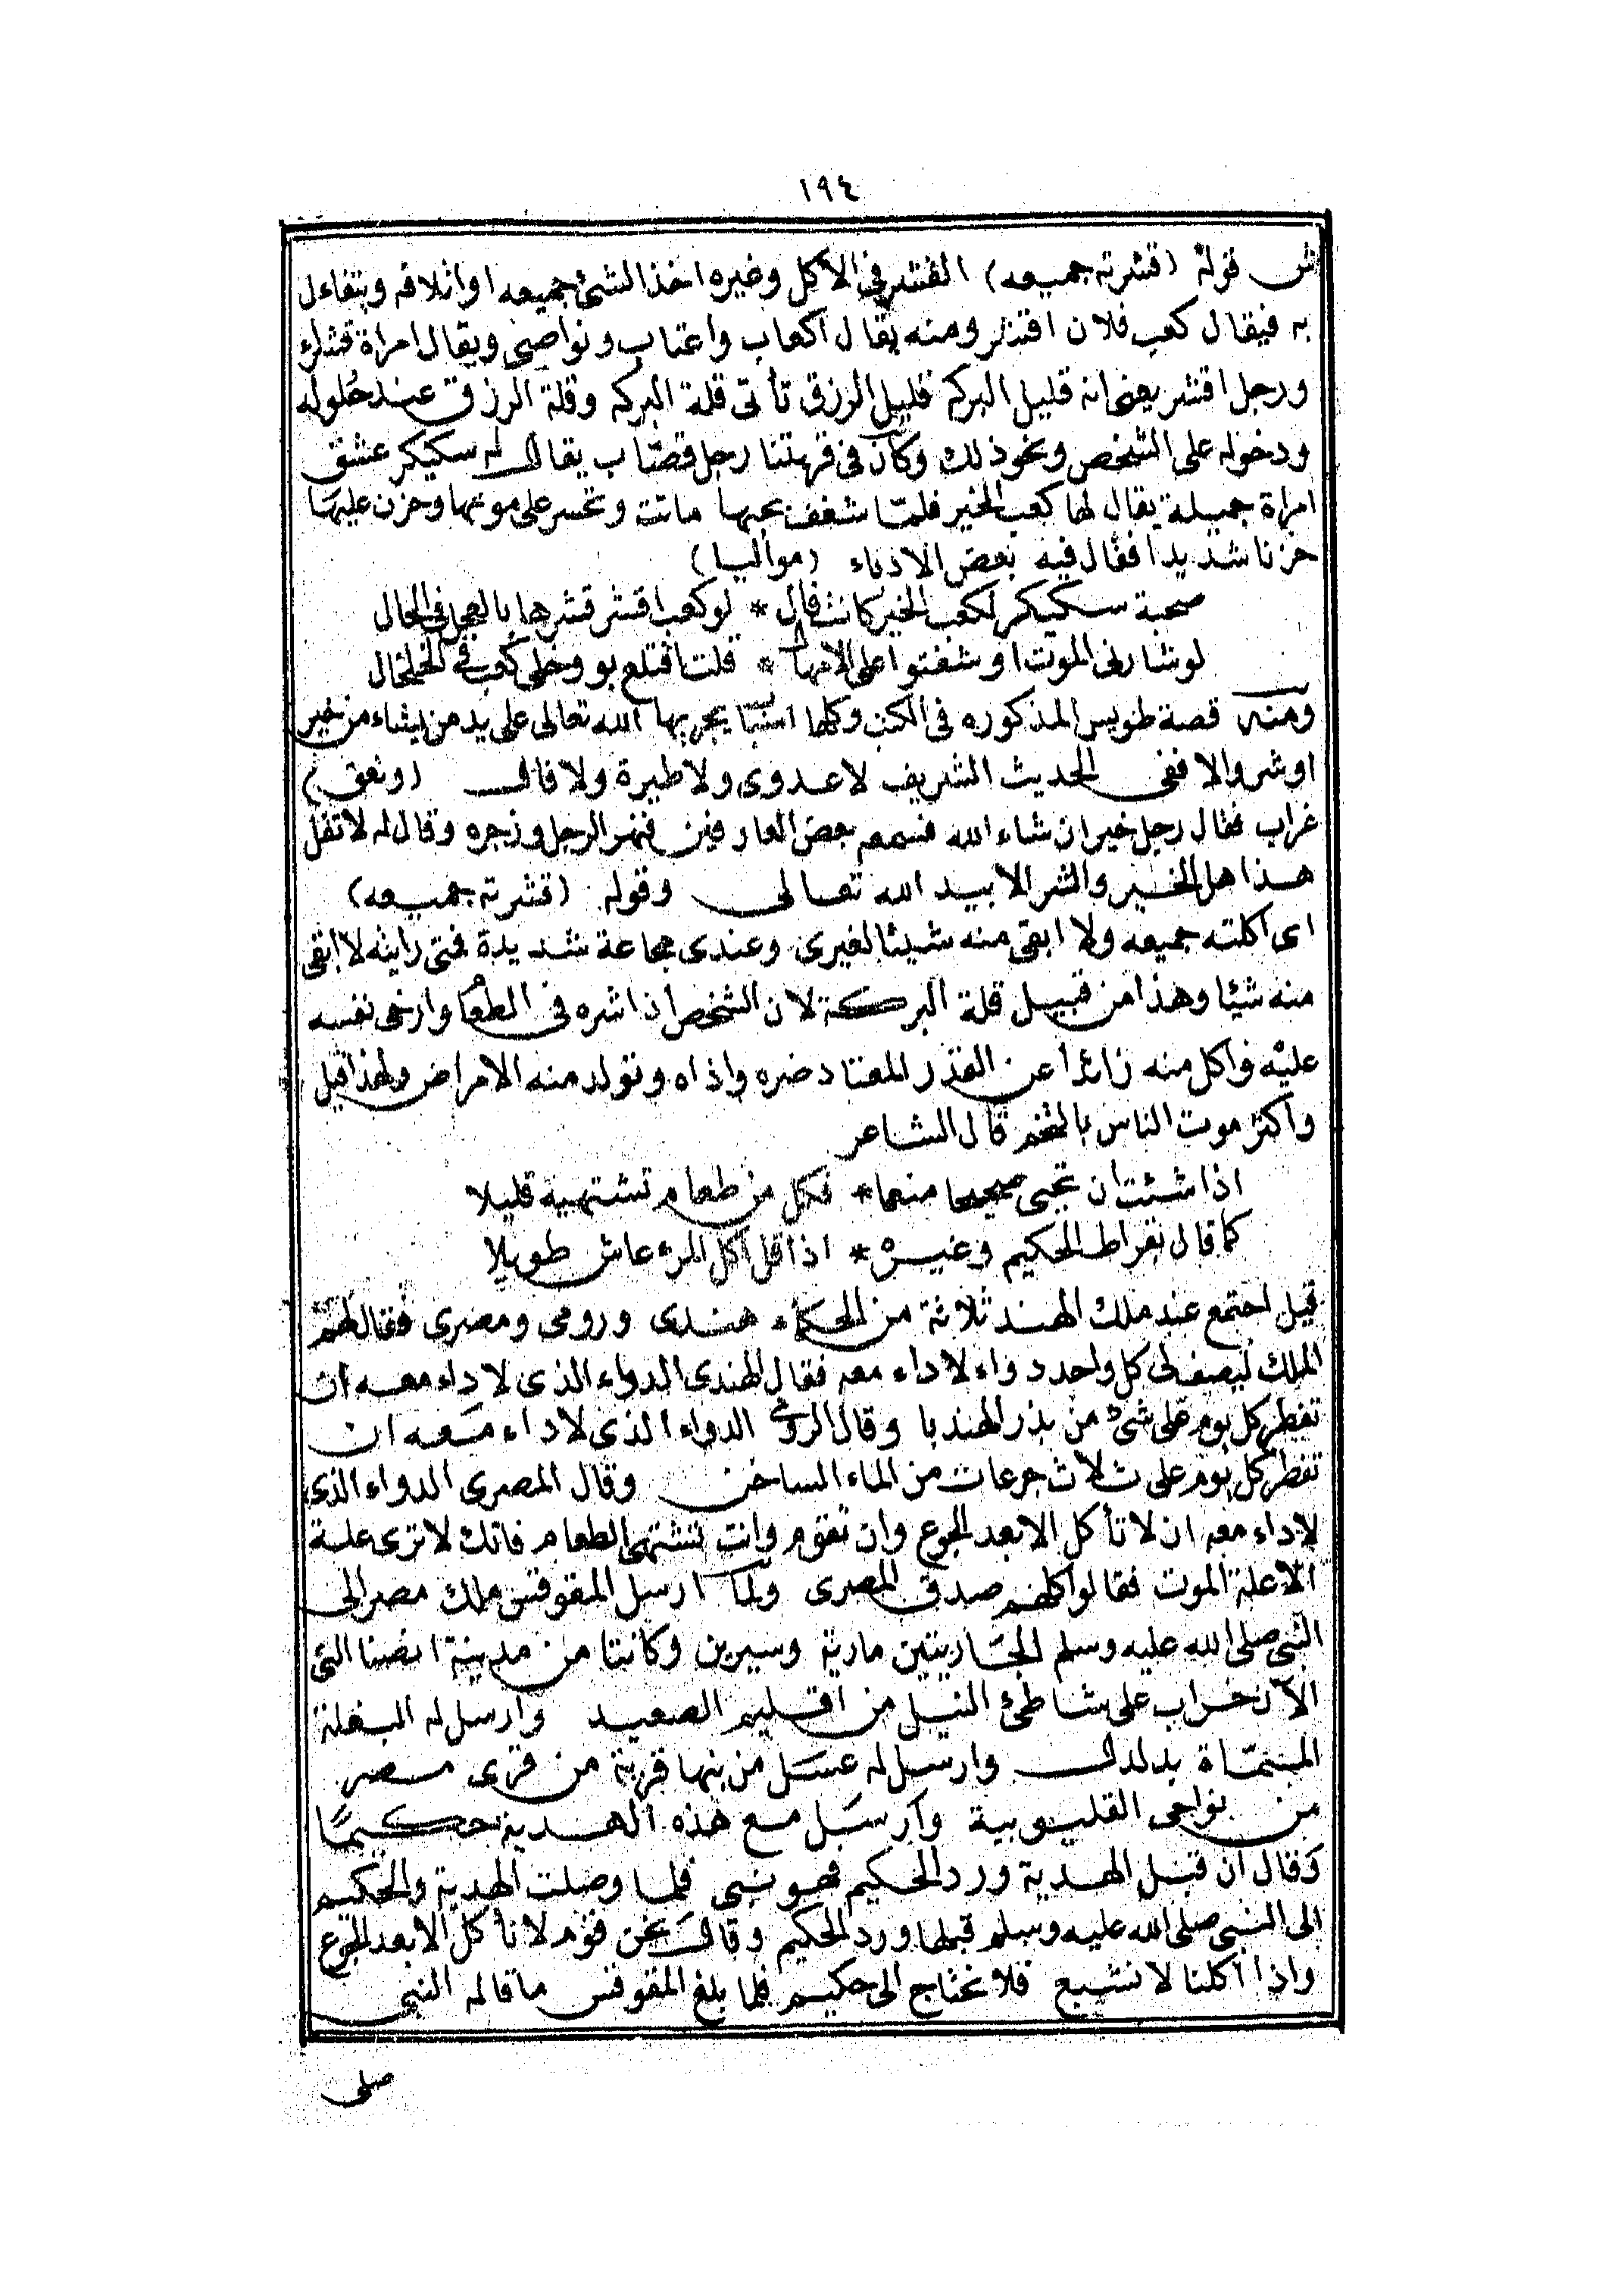 ١٩٤
ش قوله (قشرته جميعه) القشر في الاكل وغيره اخذ الشئ جميعه او اتلافه ويتفاءل
به فيقال كعب فلان اقشر ومنه يقال اكعاب واعتاب ونواصي ويقال امراة قشراء
ورجل اقشر يعنى انه قليل البركه قليل الرزق تأتى قلة البركه وقلة الرزق عند حلوله
ودخوله على الشخص ونحو ذلك وكان فى قريتنا رجل قصّاب يقال له سكيكر عشق
امراة جميلة يقال لها كعب الخير فلمّا شغف بحبها ماتت وتحسر على موتها وحزن عليها
حزنا شديدا فقال فيه بعض الادباء (مواليا)
صحبة سكيكر لكعب الخير كانت فال * لو كعب اقشر قشرها بالعجل فى الحال
لو شارنى الموت او شفتوا على الامهال * قلت اقتلع بو وخلى كعب في الخلخال
ومنه قصة طويس المذكوره فى الكتب وكلها اسباب يجريها الله تعالى على يد من يشاء من خير
او شر والا ففى الحديث الشريف لا عدوى ولا طيرة ولا فال (ونعق)
غراب فقال رجل خير ان شاء الله فسمعه بعض العارفين فنهر الرجل وزجره وقال له لا تقل
هذا هل الخير والشر الا بيد الله تعالى وقوله (قشرته جميعه)
اى اكلته جميعه ولا ابقى منه شيئا لغيرى وعندى مجاعة شديدة فمتى رايته لا ابقى
منه شيئا وهذا من قبيل قلة البركة لان الشخص اذا شره فى الطعام وارخى نفسه
عليه فأكل منه زائدا عن القدر المعتاد ضره واذاه وتولد منه الامراض ولهذا قيل
واكثر موت الناس بالتخم قال الشاعر
اذا شئت ان تحيى صحيحا منعما * فكل من طعام تشتهيه قليلا
كما قال بقراط الحكيم وغيره * اذا قل اكل المرء عاش طويلا
قيل اجتمع عند ملك الهند ثلاثة من الحكماء هندى ورومى ومصرى فقال لهم
الملك ليصف لى كل واحد دواء لا داء معه فقال الهندى الدواء الذى لا داء معه ان
تفطر كل يوم على شئ من بذر الهندبا وقال الرومى الدواء الذى لا داء معه ان
تفطر كل يوم على ثلاث جرعات من الماء الساخن وقال المصرى الدواء الذى
لا داء معه ان لا تأكل الا بعد الجوع وان تقوم وانت تشتهى الطعام فانك لا ترى علة
الا علة الموت فقالوا كلهم صدق المصرى ولما ارسل المقوقس ملك مصر الى
النبى صلى الله عليه وسلم الجاريتين مارية وسيرين وكانتا من مدينة انصنا التى
الآن خراب على شاطئ النيل من اقليم الصعيد وارسل له البغلة
المسمّاة بدلدل وارسل له عسل من بنها قرية من قرى مصر
من نواحى القليوبية وارسل مع هذه الهدية حكيمًا
وقال ان قبل الهدية ورد الحكيم فهو نبى فلما وصلت الهدية والحكيم
الى النبى صلى الله عليه وسلم قبلها ورد الحكيم وقال نحن قوم لا نأكل الا بعد الجوع
واذا اكلنا لا نشبع فلا نحتاج الى حكيم فلما بلغ المقوقس ما قاله النبى
صلى